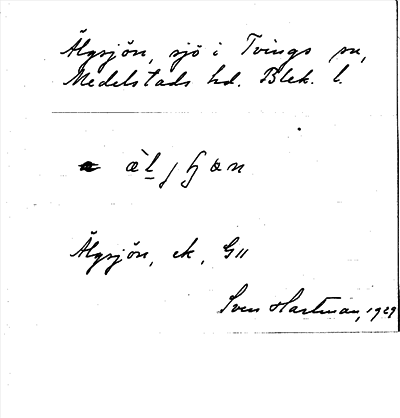 Älgsjön, sjö i Tvings sn,
Medelstads hd. Blek. l.
Älgsjön, ek, G11
Sven Hartman, 1929